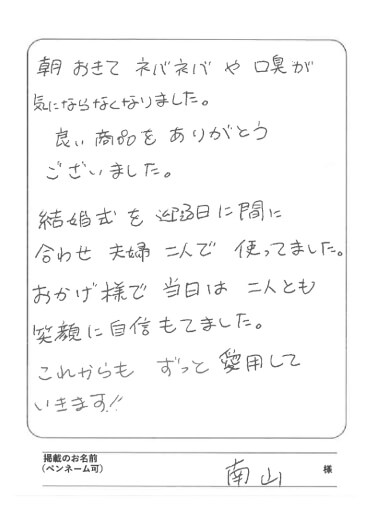 朝 おきて ネバネバ や 口臭が
気にならなくなりました。
良い 商品を ありがとう
ございました。
結婚式 を 近日に間に
合わせ 夫婦 二人で 使ってました。
おかげ様で 当日は 二人とも
笑顔に自信もてました。
これからも ずっと 愛用して
いきます!!
掲載のお名前
(ペンネーム可)
南山 様